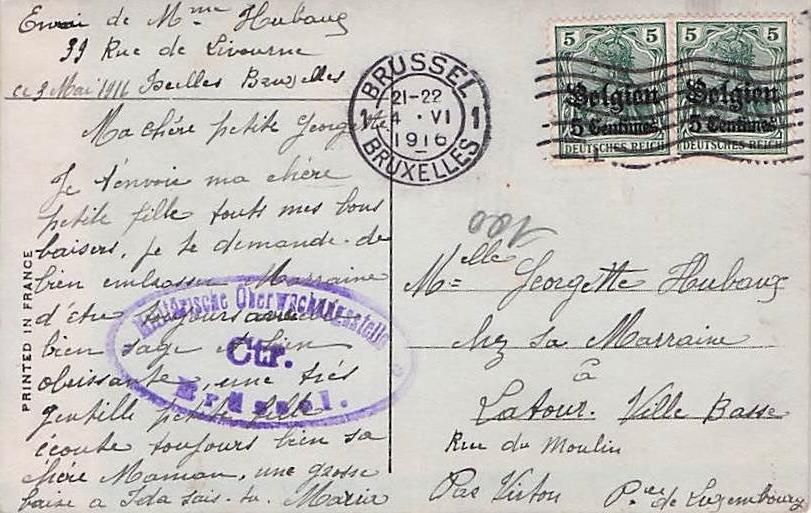 Envoi de Mme Hubaux
39 Rue de Livourne
ce 3 Mai 1916 Ixelles Bruxelles
Ma chère petite Georgette
Je t'envoie ma chère
petite fille touts mes bons
baisers, je te demande de
bien embrasser Marraine
d'être toujours
bien sage et bien
obeissante, une très
gentille petite fille
écoute toujours bien sa
chère Maman, une grosse
baise a Ida sais-tu. Maria
PRINTED IN FRANCE
Militärische Überwachungsstelle
Ctr.
Brüssel.
BRUSSEL
1 21-22 1
4 · VI
1916
BRUXELLES
5 5 5 5
Belgien Belgien
5 Centimes 5 Centimes
DEUTSCHES REICH DEUTSCHES REICH
100
Melle Georgette Hubaux
chez sa Marraine
à
Latour. Ville Basse
Rue du Moulin
Par Virton Pce de Luxembourg